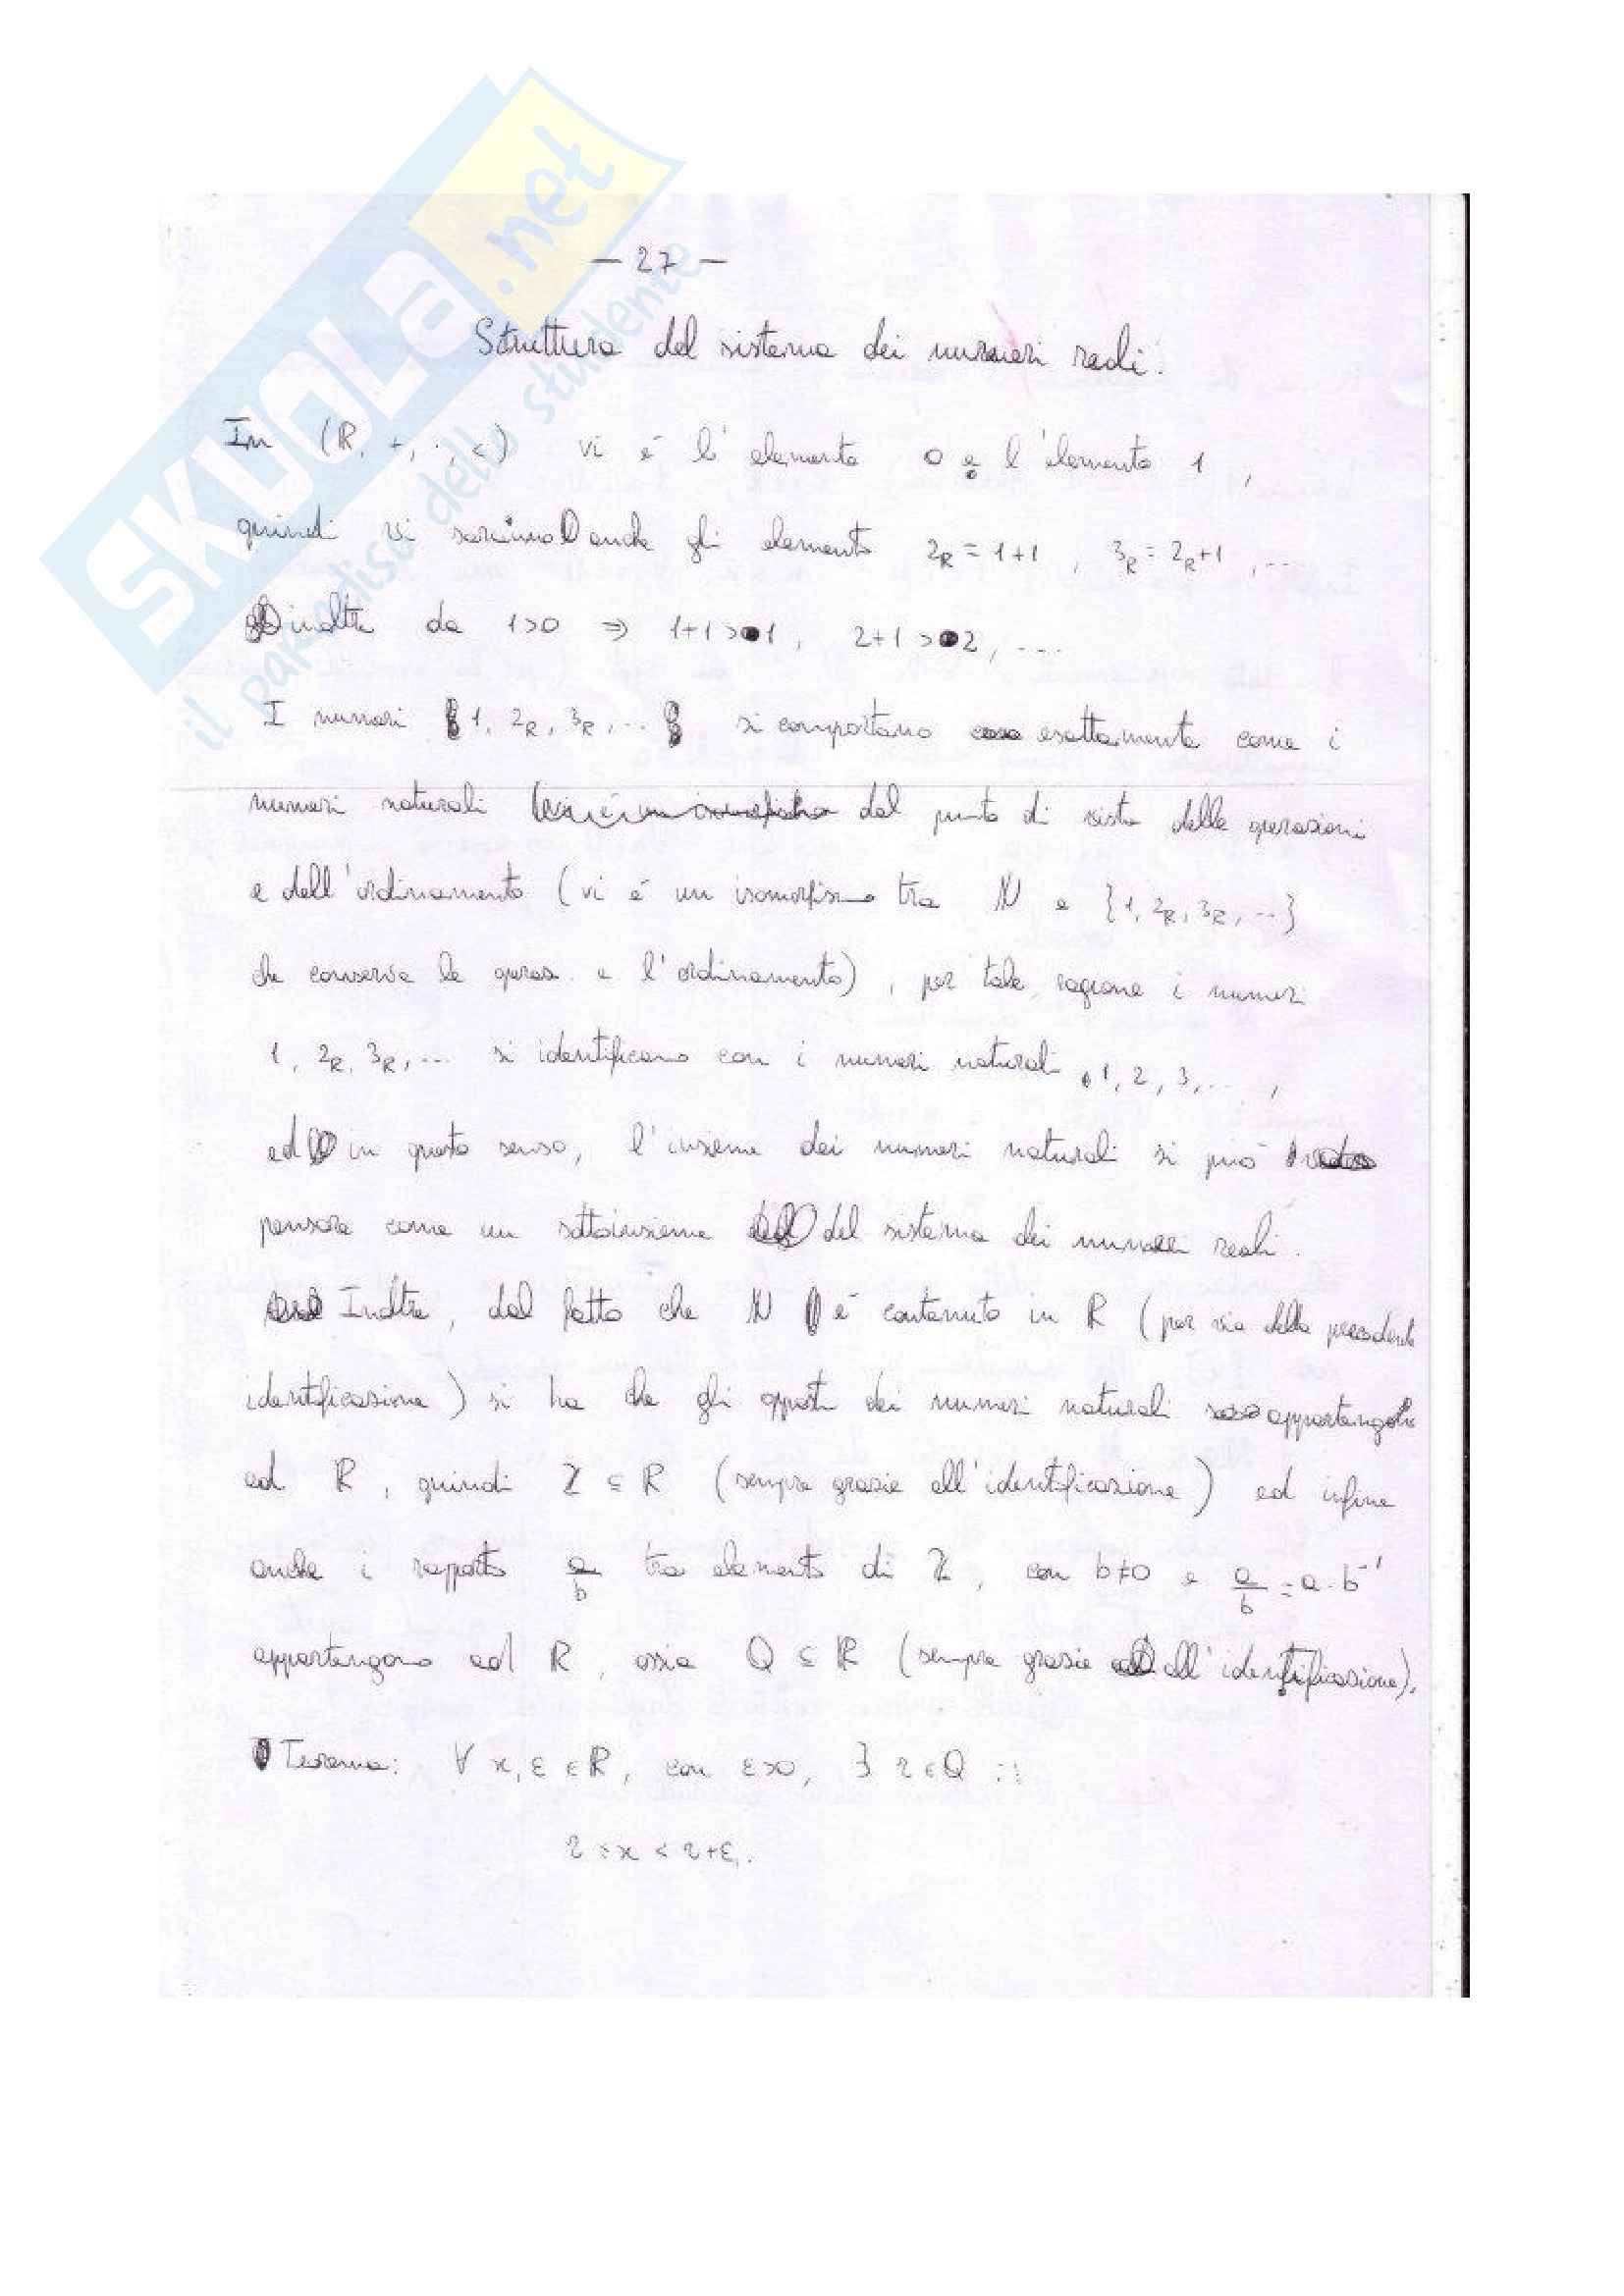 SKUOLA.net
il paradiso dello studente
— 27 —
Struttura del sistema dei numeri reali.
In (R, +, ·, <) vi è lo elemento 0 e l'elemento 1,
quindi vi saranno anche gli elementi 2_R = 1+1, 3_R = 2_R+1, ...
inoltre da 1>0 ⇒ 1+1>1, 2+1>2, ...
I numeri 1, 2_R, 3_R, ... si comportano esattamente come i
numeri naturali dal punto di vista delle operazioni
e dell'ordinamento (vi è un isomorfismo tra N e {1, 2_R, 3_R, ...}
che conserva le operaz. e l'ordinamento), per tale ragione i numeri
1, 2_R, 3_R, ... si identificano con i numeri naturali 1, 2, 3, ...,
ed in questo senso, l'insieme dei numeri naturali si può
pensare come un sottoinsieme del sistema dei numeri reali.
Inoltre, dal fatto che N è contenuto in R (per via della precedente
identificazione) si ha che gli opposti dei numeri naturali appartengono
ad R, quindi Z ⊆ R (sempre grazie all'identificazione) ed infine
anche i rapporti a/b tra elementi di Z, con b≠0 e a/b = a·b⁻¹
appartengono ad R, ossia Q ⊆ R (sempre grazie all'identificazione).
Teorema: ∀ x, ε ∈ R, con ε>0, ∃ r ∈ Q :
r ≤ x < r+ε.